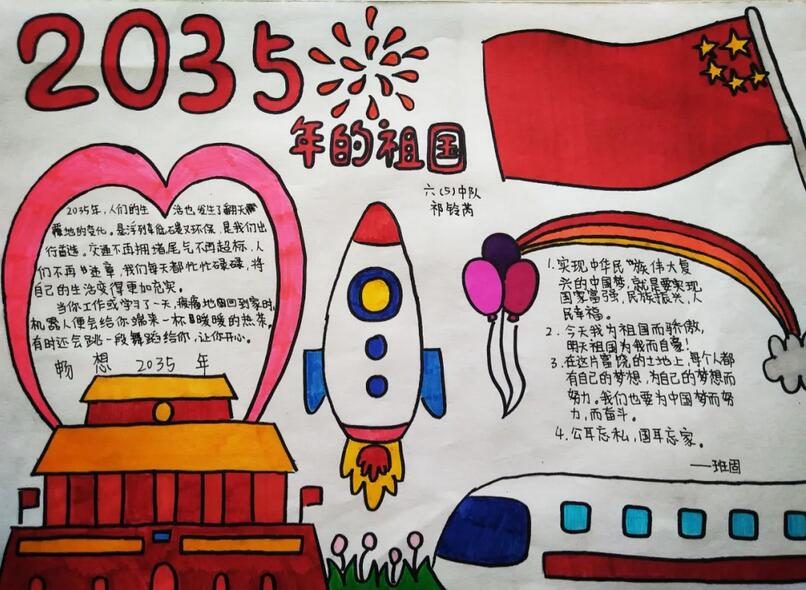 2035
年的祖国
六(5)中队
祁铃芮
2035年,人们的生活也发生了翻天覆
覆地的变化。是浮列车既低碳又环保,是我们出
行首选。交通不再拥堵尾气不再超标,人
们不再"违章,我们每天都忙忙碌碌,将
自己的生活变得更加充实。
当你工作或学习了一天,疲痛地回到家时,
机器人便会给你端来一杯暖暖的热茶。
有时还会跳一段舞蹈给你,让你开心。
畅想 2035 年
1.实现中华民族伟大复
兴的中国梦,就是要实现
国家富强,民族振兴,人
民幸福。
2.今天我为祖国而骄傲,
明天祖国为我而自豪!
3.在这片富饶的土地上,每个人都
有自己的梦想,为自己的梦想而
努力。我们也要为中国梦而努
力,而奋斗。
4.公耳忘私,国耳忘家。
——班固